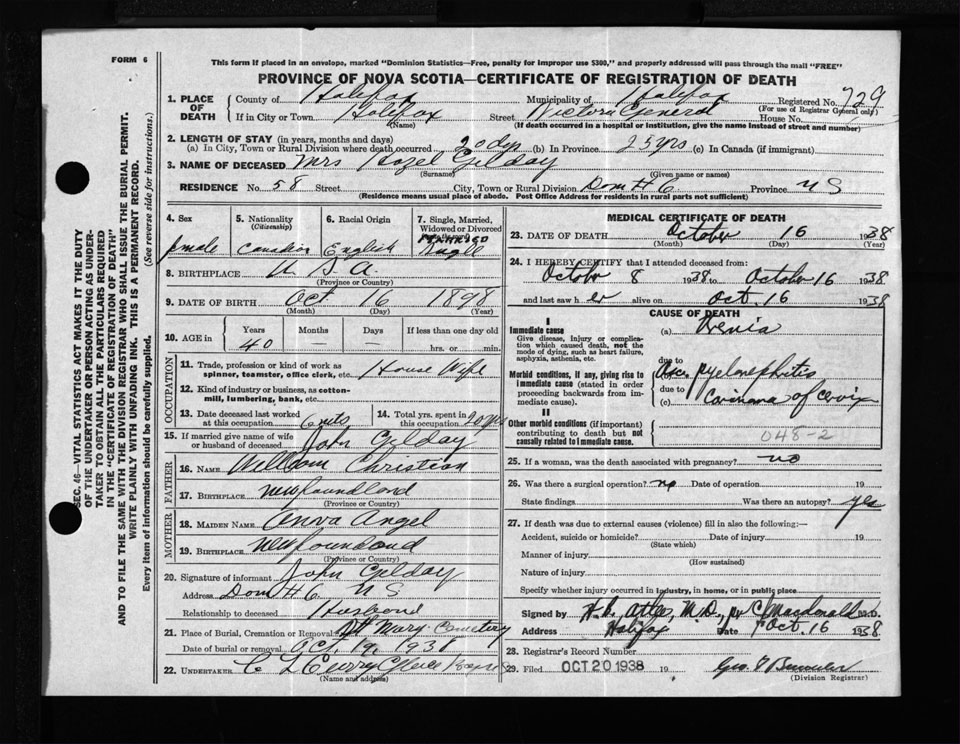 FORM 6
This form if placed in an envelope, marked "Dominion Statistics—Free, penalty for improper use $300," and properly addressed will pass through the mail "FREE"
PROVINCE OF NOVA SCOTIA—CERTIFICATE OF REGISTRATION OF DEATH
SEC. 46—VITAL STATISTICS ACT MAKES IT THE DUTY
OF THE UNDERTAKER OR PERSON ACTING AS UNDER-
TAKER TO OBTAIN ALL THE PARTICULARS REQUIRED
IN THE "CERTIFICATE OF REGISTRATION OF DEATH"
AND TO FILE THE SAME WITH THE DIVISION REGISTRAR WHO SHALL ISSUE THE BURIAL PERMIT.
WRITE PLAINLY WITH UNFADING INK. THIS IS A PERMANENT RECORD.
Every item of information should be carefully supplied. (See reverse side for instructions.)
1. PLACE OF DEATH County of Halifax Municipality of Halifax Registered No. 729
(For use of Registrar General only)
If in City or Town Halifax Street Victoria General House No.
(Name) (If death occurred in a hospital or institution, give the name instead of street and number)
2. LENGTH OF STAY (in years, months and days)
(a) In City, Town or Rural Division where death occurred 20 dys (b) In Province 25 yrs (c) In Canada (if immigrant)
3. NAME OF DECEASED Mrs Hazel Gilday
(Surname) (Given name or names)
RESIDENCE No. 58 Street City, Town or Rural Division Dom # 6 Province N S
(Residence means usual place of abode. Post Office Address for residents in rural parts not sufficient)
4. Sex 5. Nationality (Citizenship) 6. Racial Origin 7. Single, Married, Widowed or Divorced
female Canadian English MARRIED
8. BIRTHPLACE U S A.
(Province or Country)
9. DATE OF BIRTH Oct 16 1898
(Month) (Day) (Year)
10. AGE in Years Months Days If less than one day old
40 — — hrs. or min.
OCCUPATION
11. Trade, profession or kind of work as House Wife
spinner, teamster, office clerk, etc.
12. Kind of industry or business, as cotton-
mill, lumbering, bank, etc.
13. Date deceased last worked at this occupation 14. Total yrs. spent in this occupation 20 yrs
15. If married give name of wife or husband of deceased John Gilday
FATHER
16. NAME William Christian
17. BIRTHPLACE Newfoundland
(Province or Country)
MOTHER
18. MAIDEN NAME Anna Angel
19. BIRTHPLACE Newfoundland
(Province or Country)
20. Signature of informant John Gilday
Address Dom # 6 N S
Relationship to deceased Husband
21. Place of Burial, Cremation or Removal St Mary Cemetery
Date of burial or removal Oct. 19, 1938
22. UNDERTAKER C L Curry
(Name and address)
MEDICAL CERTIFICATE OF DEATH
23. DATE OF DEATH October 16 1938
(Month) (Day) (Year)
24. I HEREBY CERTIFY that I attended deceased from:
October 8 1938 to October 16 1938
and last saw her alive on Oct. 16 1938
CAUSE OF DEATH
I
Immediate cause (a) Uremia
Give disease, injury or complica-
tion which caused death, not the
mode of dying, such as heart failure,
asphyxia, asthenia, etc.
due to
Morbid conditions, if any, giving rise to
immediate cause (stated in order
proceeding backwards from im-
mediate cause).
Asc. pyelonephritis
due to
(c) Carcinoma of cervix
II
Other morbid conditions (if important)
contributing to death but not
causally related to immediate cause.
048-2
25. If a woman, was the death associated with pregnancy? no
26. Was there a surgical operation? no Date of operation 19
State findings Was there an autopsy? yes
27. If death was due to external causes (violence) fill in also the following:—
Accident, suicide or homicide? Date of injury 19
(State which)
Manner of injury
(How sustained)
Nature of injury
Specify whether injury occurred in industry, in home, or in public place
Signed by H. B. Atlee, M.D., per C. Macdonald M.D.
Address Halifax Date Oct. 16 1938
28. Registrar's Record Number
29. Filed OCT 20 1938 19
(Division Registrar)